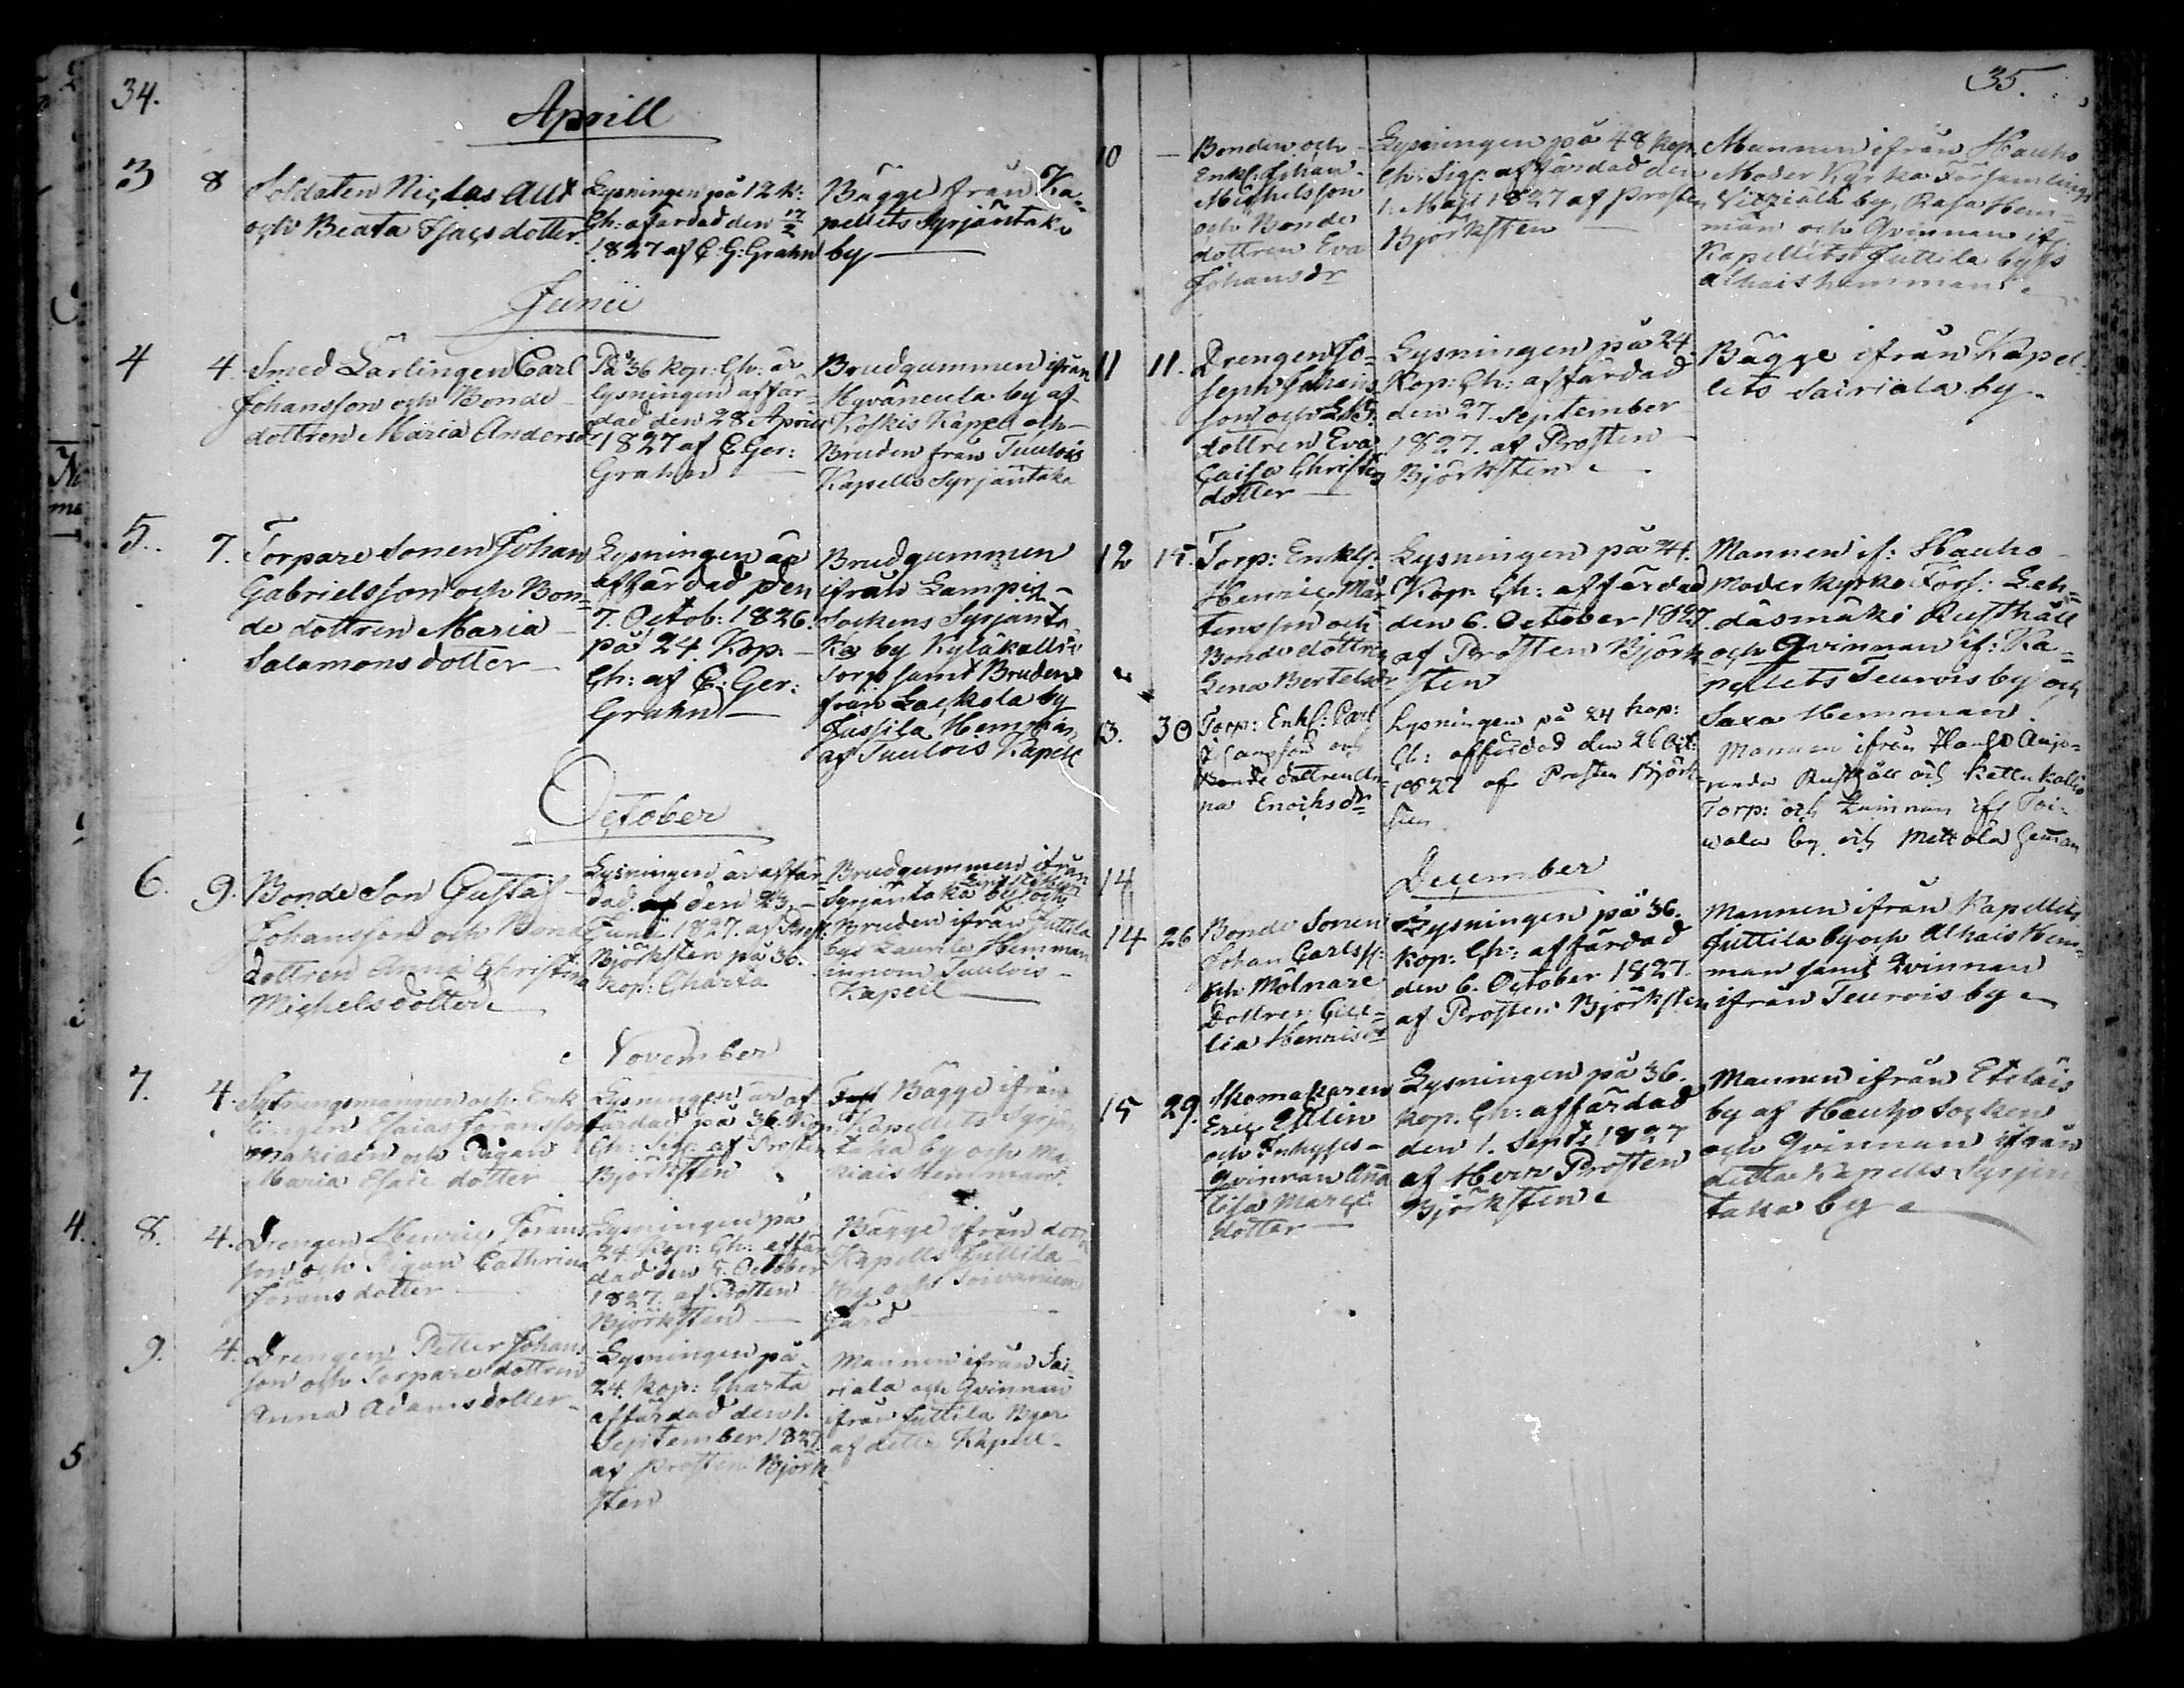 34.
Aprill
3 8
Soldaten Niclas Alt
och Beata Isacsdotter
Lysningen på 12 k:
Ch: afärdad den 17/2
1827 af C: G: Grahn
Bägge från Ka=
pellets Syrjäntaka
by
Junii
4 4.
Smed Lärlingen Carl
Johansson och Bonde
dottren Maria Andersdr
På 36 kop: Ch: är
lysningen affär=
dad den 28 Aprill
1827 af C Ger:
Grahn
Brudgummen ifrån
Hyväneula by af
Koskis Kapell och
Bruden från Tuulois
Kapells Syrjäntaka
5. 7.
Torpare Sonen Johan
Gabrielsson och Bon=
de dottren Maria
Salamons dotter
Lysningen är
affärdad den
7. Octob: 1826.
på 24. Kop:
Ch: af C: Ger:
Grahn
Brudgummen
ifrån Lampis
Sockens Syrjänta
ka by Kyläkallio
Torp samt Bruden
från Lackola by
Jussila Hemman
af Tuulois Kapell
October
6. 9.
Bonde Son Gustaf
Johansson och Bonde
dottren Anna Christina
Michelsdotter
Lysningen är affär=
dad den 23
Junii 1827. af Prost:
Björksten på 36.
kop: Charta
Brudgummen ifrån
Syrjäntaka by och
Bruden ifrån Juttila
bys Laurila Hemman
innom Tuulois
Kapell
November
7. 4.
Sytningsmannen och Enk
lingen Esaias Göransson
makiain och Pigan
Maria Esaie dotter
Lysningen är af
färdad på 36. Kop:
Ch: Sig: af Prosten
Björksten
Bägge ifrån
Kapellets Syrjän
taka by och Ma
kiais Hemman.
8. 4.
Drengen Henric Görans
son och Pigan Cathrina
Görans dotter
Lysningen på
24. Kop: Ch: affär
dad den 8. October
1827. af Prosten
Björksten
Bägge ifrån detta
Kapells Juttila
by och Soivaniemi
Gård
9. 4.
Drengen Petter Johans
son och Torpare dottren
Anna Adamsdotter
Lysningen på
24. Kop: Charta
affärdad den 1.
September 1827.
af Prosten Björk
sten
Mannen ifrån Sai=
riala och Qvinnan
ifrån Juttila Byar
af detta Kapell.
35.
10
Bonden och
Enkl: Johan
Michelsson
och Bonde
dottren Eva
Johansdr
Lysningen på 48 kop.
Ch: Sig: affärdad den
1. Maji 1827 af Prosten
Björksten
Mannen ifrån Hauho
Moder Kyrka Församlings
Vitziälä by, Rasa Hem=
man och Qvinnan if.
Kapellets Juttila bys
Alhais hemman
11 11.
Drengen Jo=
seph Johans
son och
dottren Eva
Caisa Christers
dotter
Lysningen på 24
Kop: Ch: affärdad
den 27. September
1827. af Prosten
Björksten
Bägge ifrån Kapel
lets Sairiala by
12 15.
Torp: Enkl:
Henric Mår
tensson och
Bonde dottren
Lena Bertelsdr
Lysningen på 24.
Kop: Ch: affärdad
den 6. October 1827
af Prosten Björk
sten
Mannen if: Hauho
moder kyrko Förs: Leh=
däsmäki Rusthåll
och Qvinnan if: Ka=
pellets Teurois by och
Saxa Hemman.
13. 30
Torp: Enkl: Carl
och
Bonde dottren An
na Enochsdr
Lysningen på 24 kop:
Ch: affärdad den 26 Oct:
1827 af Prosten Björk
sten
Mannen ifrån Hauho
Rusthåll och kallio
Torp: och Qvinnan if: Toi=
wala by och Mettola Hemman
14
December
14 26
Bonde Sonen
Johan Carlss:
och Mölnare
Dottren Ceci=
lia Henricsdr
Lysningen på 36.
kop: Ch: affärdad
den 6. October 1827.
af Prosten Björksten
Mannen ifrån Kapellets
Juttila by och Alhais Hem=
man samt Qvinnan
ifrån Teurois by
15 29.
Skomakaren
Eric Utlin
och Inhyses
qvinnan Anna
Lisa Marci
dotter
Lysningen på 36.
kop. Ch: affärdad
den 1. Septr 1827
af Herr Prosten
Björksten
Mannen ifrån Eteläis
by af Hauho Socken
och Qvinnan ifrån
detta Kapells Syrjän
taka by